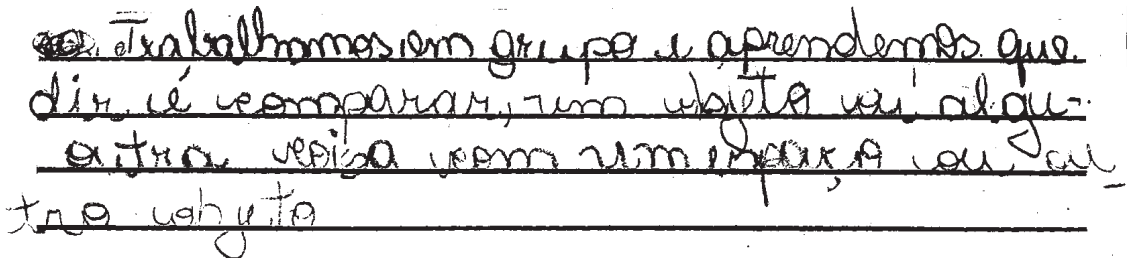 Trabalhamos em grupo e aprendemos que
dir é comparar, um objeto ou algu-
a otra coisa com um espaço ou ou-
tro objeto